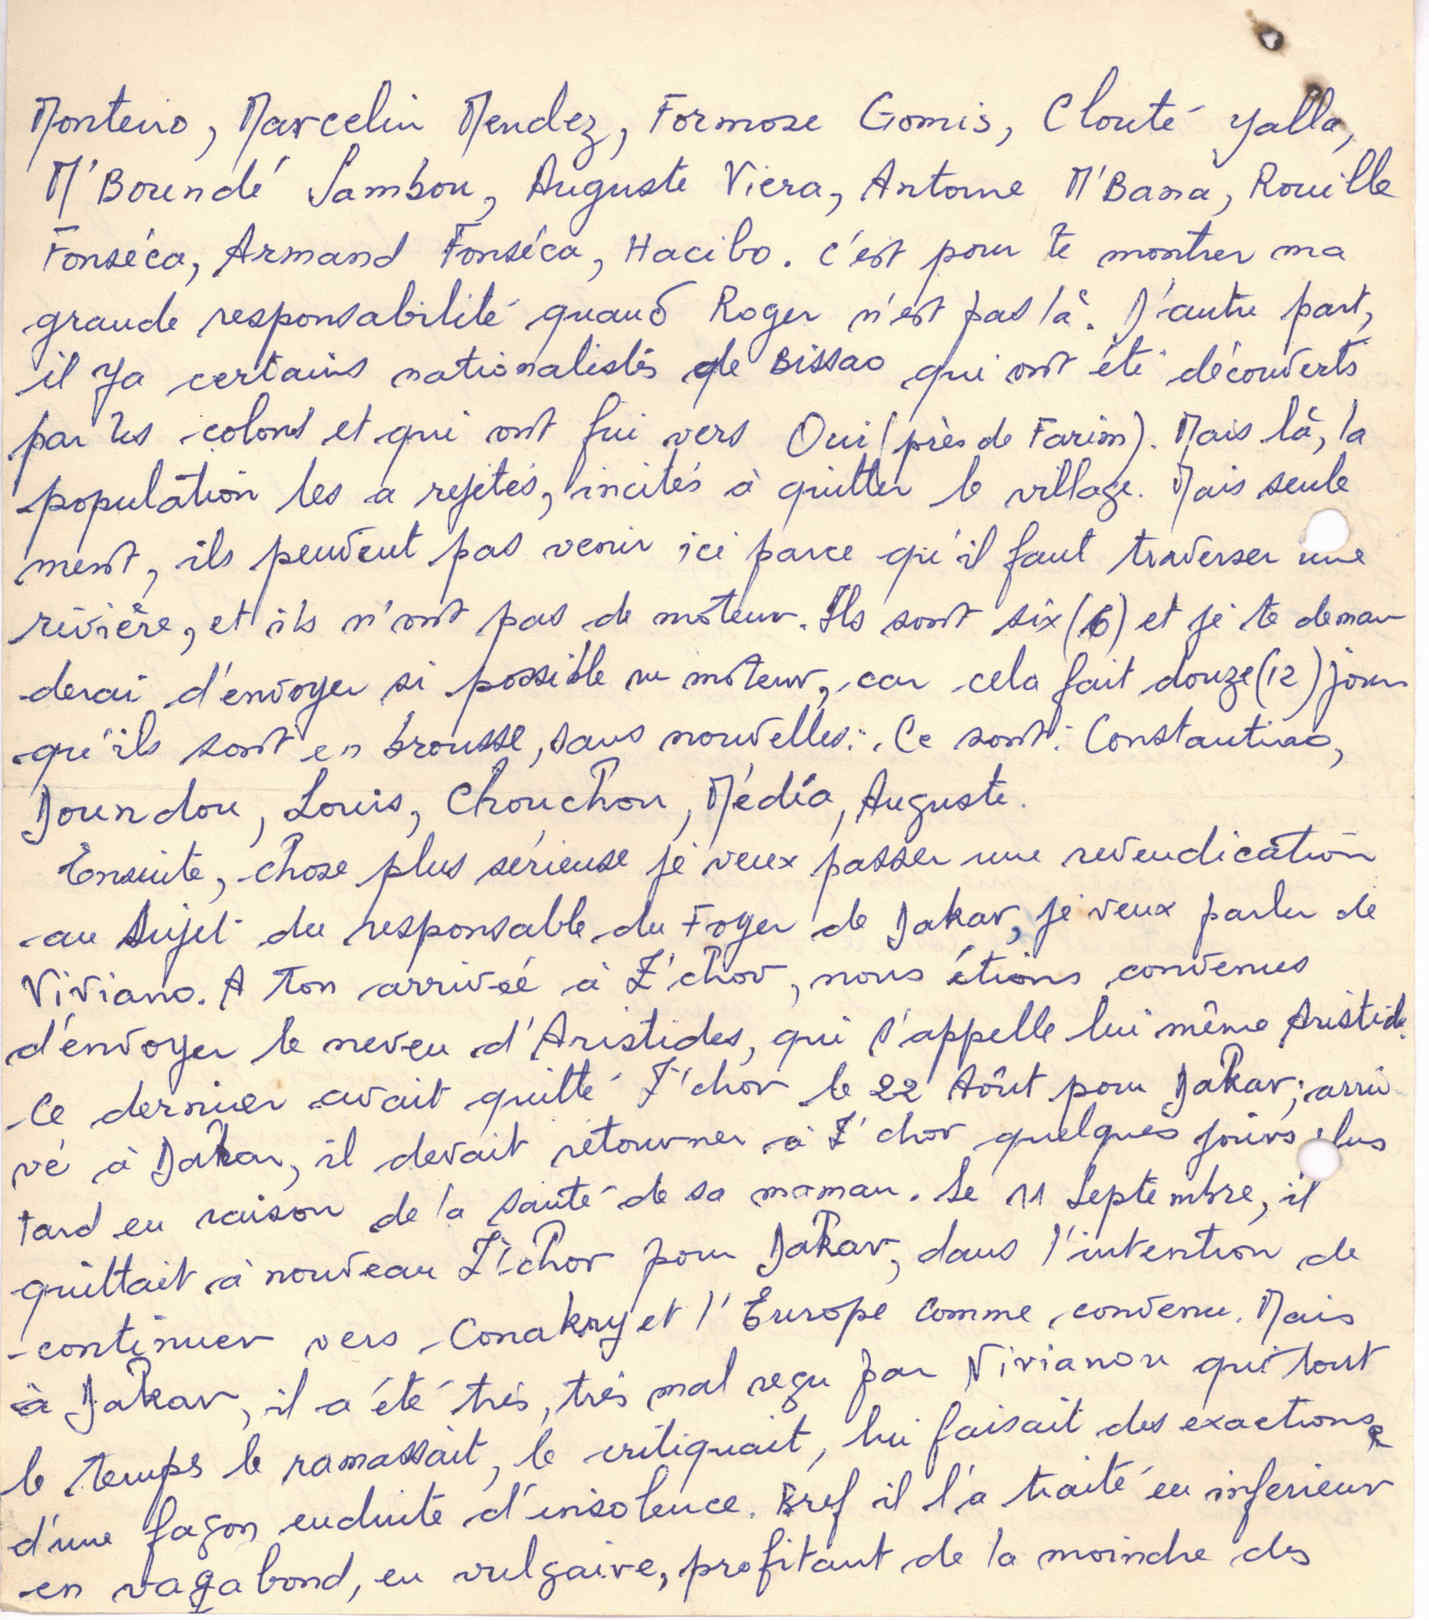 Monteiro, Marcelin Mendez, Formose Gomis, Clouté Yalla,
M'Boundé Sambou, Auguste Viera, Antoine M'Bana, Rouille
Fonséca, Armand Fonséca, Hacibo. C'est pour te montrer ma
grande responsabilité quand Roger n'est pas là. D'autre part,
il ya certains nationalistes de Bissao qui ont été découverts
par les colons et qui ont fui vers Oui (près de Farim). Mais là, la
population les a rejetés, incités à quitter le village. Mais seule
ment, ils peuvent pas venir ici parce qu'il faut traverser une
rivière, et ils n'ont pas de moteur. Ils sont six (6) et je te deman
derai d'envoyer si possible un moteur, car cela fait douze (12) jours
qu'ils sont en brousse, sans nouvelles. Ce sont: Constantino,
Doundou, Louis, Chouchou, Médía, Auguste.
Ensuite, chose plus sérieuse je veux passer une revendication
au sujet du responsable du Foyer de Dakar, je veux parler de
Viviano. A ton arrivée à Z'chor, nous étions convenus
d'envoyer le neveu d'Aristides, qui s'appelle lui même Aristide.
Ce dernier avait quitté Z'chor le 22 Août pour Dakar; arri
vé à Dakar, il devait retourner à Z'chor quelques jours plus
tard en raison de la santé de sa maman. Le 11 Septembre, il
quittait à nouveau Z'chor pour Dakar, dans l'intention de
continuer vers Conakry et l'Europe comme convenu. Mais
à Dakar, il a été très, très mal reçu par Vivianou qui tout
le temps le ramassait, le critiquait, lui faisait des exactions
d'une façon enduite d'insolence. Bref il l'a traité en inferieur
en vagabond, en vulgaire, profitant de la moindre des